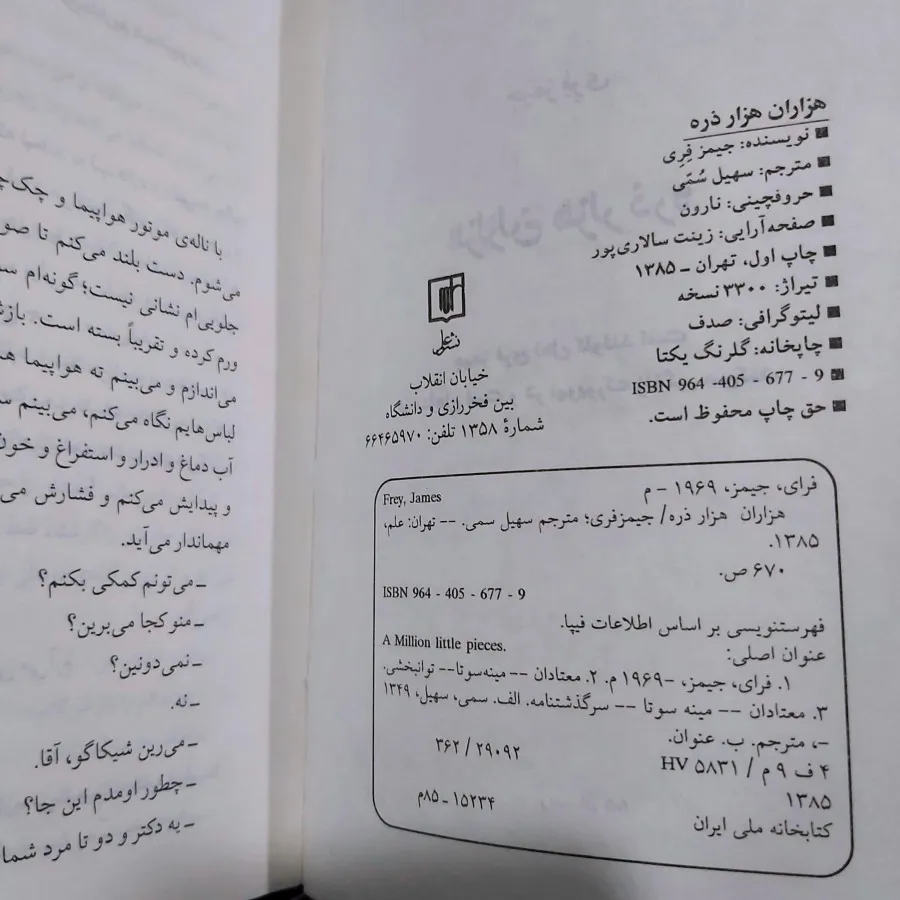 هزاران هزار ذره
نویسنده: جیمز فِرِی
مترجم: سهیل سُمّی
حروفچینی: نارون
صفحه‌آرایی: زینت سالاری‌پور
چاپ اول، تهران ـ ۱۳۸۵
تیراژ: ۳۳۰۰ نسخه
لیتوگرافی: صدف
چاپخانه: گلرنگ یکتا
ISBN 964 -405 - 677 - 9
حق چاپ محفوظ است.
نشر علم
خیابان انقلاب
بین فخررازی و دانشگاه
شمارهٔ ۱۳۵۸ تلفن: ۶۶۴۶۵۹۷۰
فرای، جیمز، ۱۹۶۹ - م
Frey, James
هزاران هزار ذره/ جیمزفری؛ مترجم سهیل سمی. -- تهران: علم،
۱۳۸۵.
۶۷۰ ص.
ISBN 964 - 405 - 677 - 9
فهرستنویسی بر اساس اطلاعات فیپا.
عنوان اصلی:
A Million little pieces.
۱. فرای، جیمز، -۱۹۶۹ م. ۲. معتادان -- مینه‌سوتا-- توانبخشی.
۳. معتادان -- مینه سوتا -- سرگذشتنامه. الف. سمی، سهیل، ۱۳۴۹
-، مترجم. ب. عنوان.
۴ ف ۹ م / HV ۵۸۳۱
۳۶۲ / ۲۹۰۹۲
۱۳۸۵
کتابخانه ملی ایران
۱۵۲۳۴ ـ ۸۵م
با ناله‌ی موتور هواپیما و
می‌شوم. دست بلند می‌کنم تا
جلویی‌ام نشانی نیست؛ گونه‌ام
ورم کرده و تقریباً بسته است.
می‌اندازم و می‌بینم ته هواپیما
لباس‌هایم نگاه می‌کنم، می‌بینم
آب دماغ و ادرار و استفراغ و خون
و پیدایش می‌کنم و فشارش می
مهماندار می‌آید.
ـ می‌تونم کمکی بکنم؟
ـ منو کجا می‌برین؟
ـ نمی‌دونین؟
ـ نه.
ـ می‌رین شیکاگو، آقا.
ـ چطور اومدم این جا؟
ـ یه دکتر و دو تا مرد شما